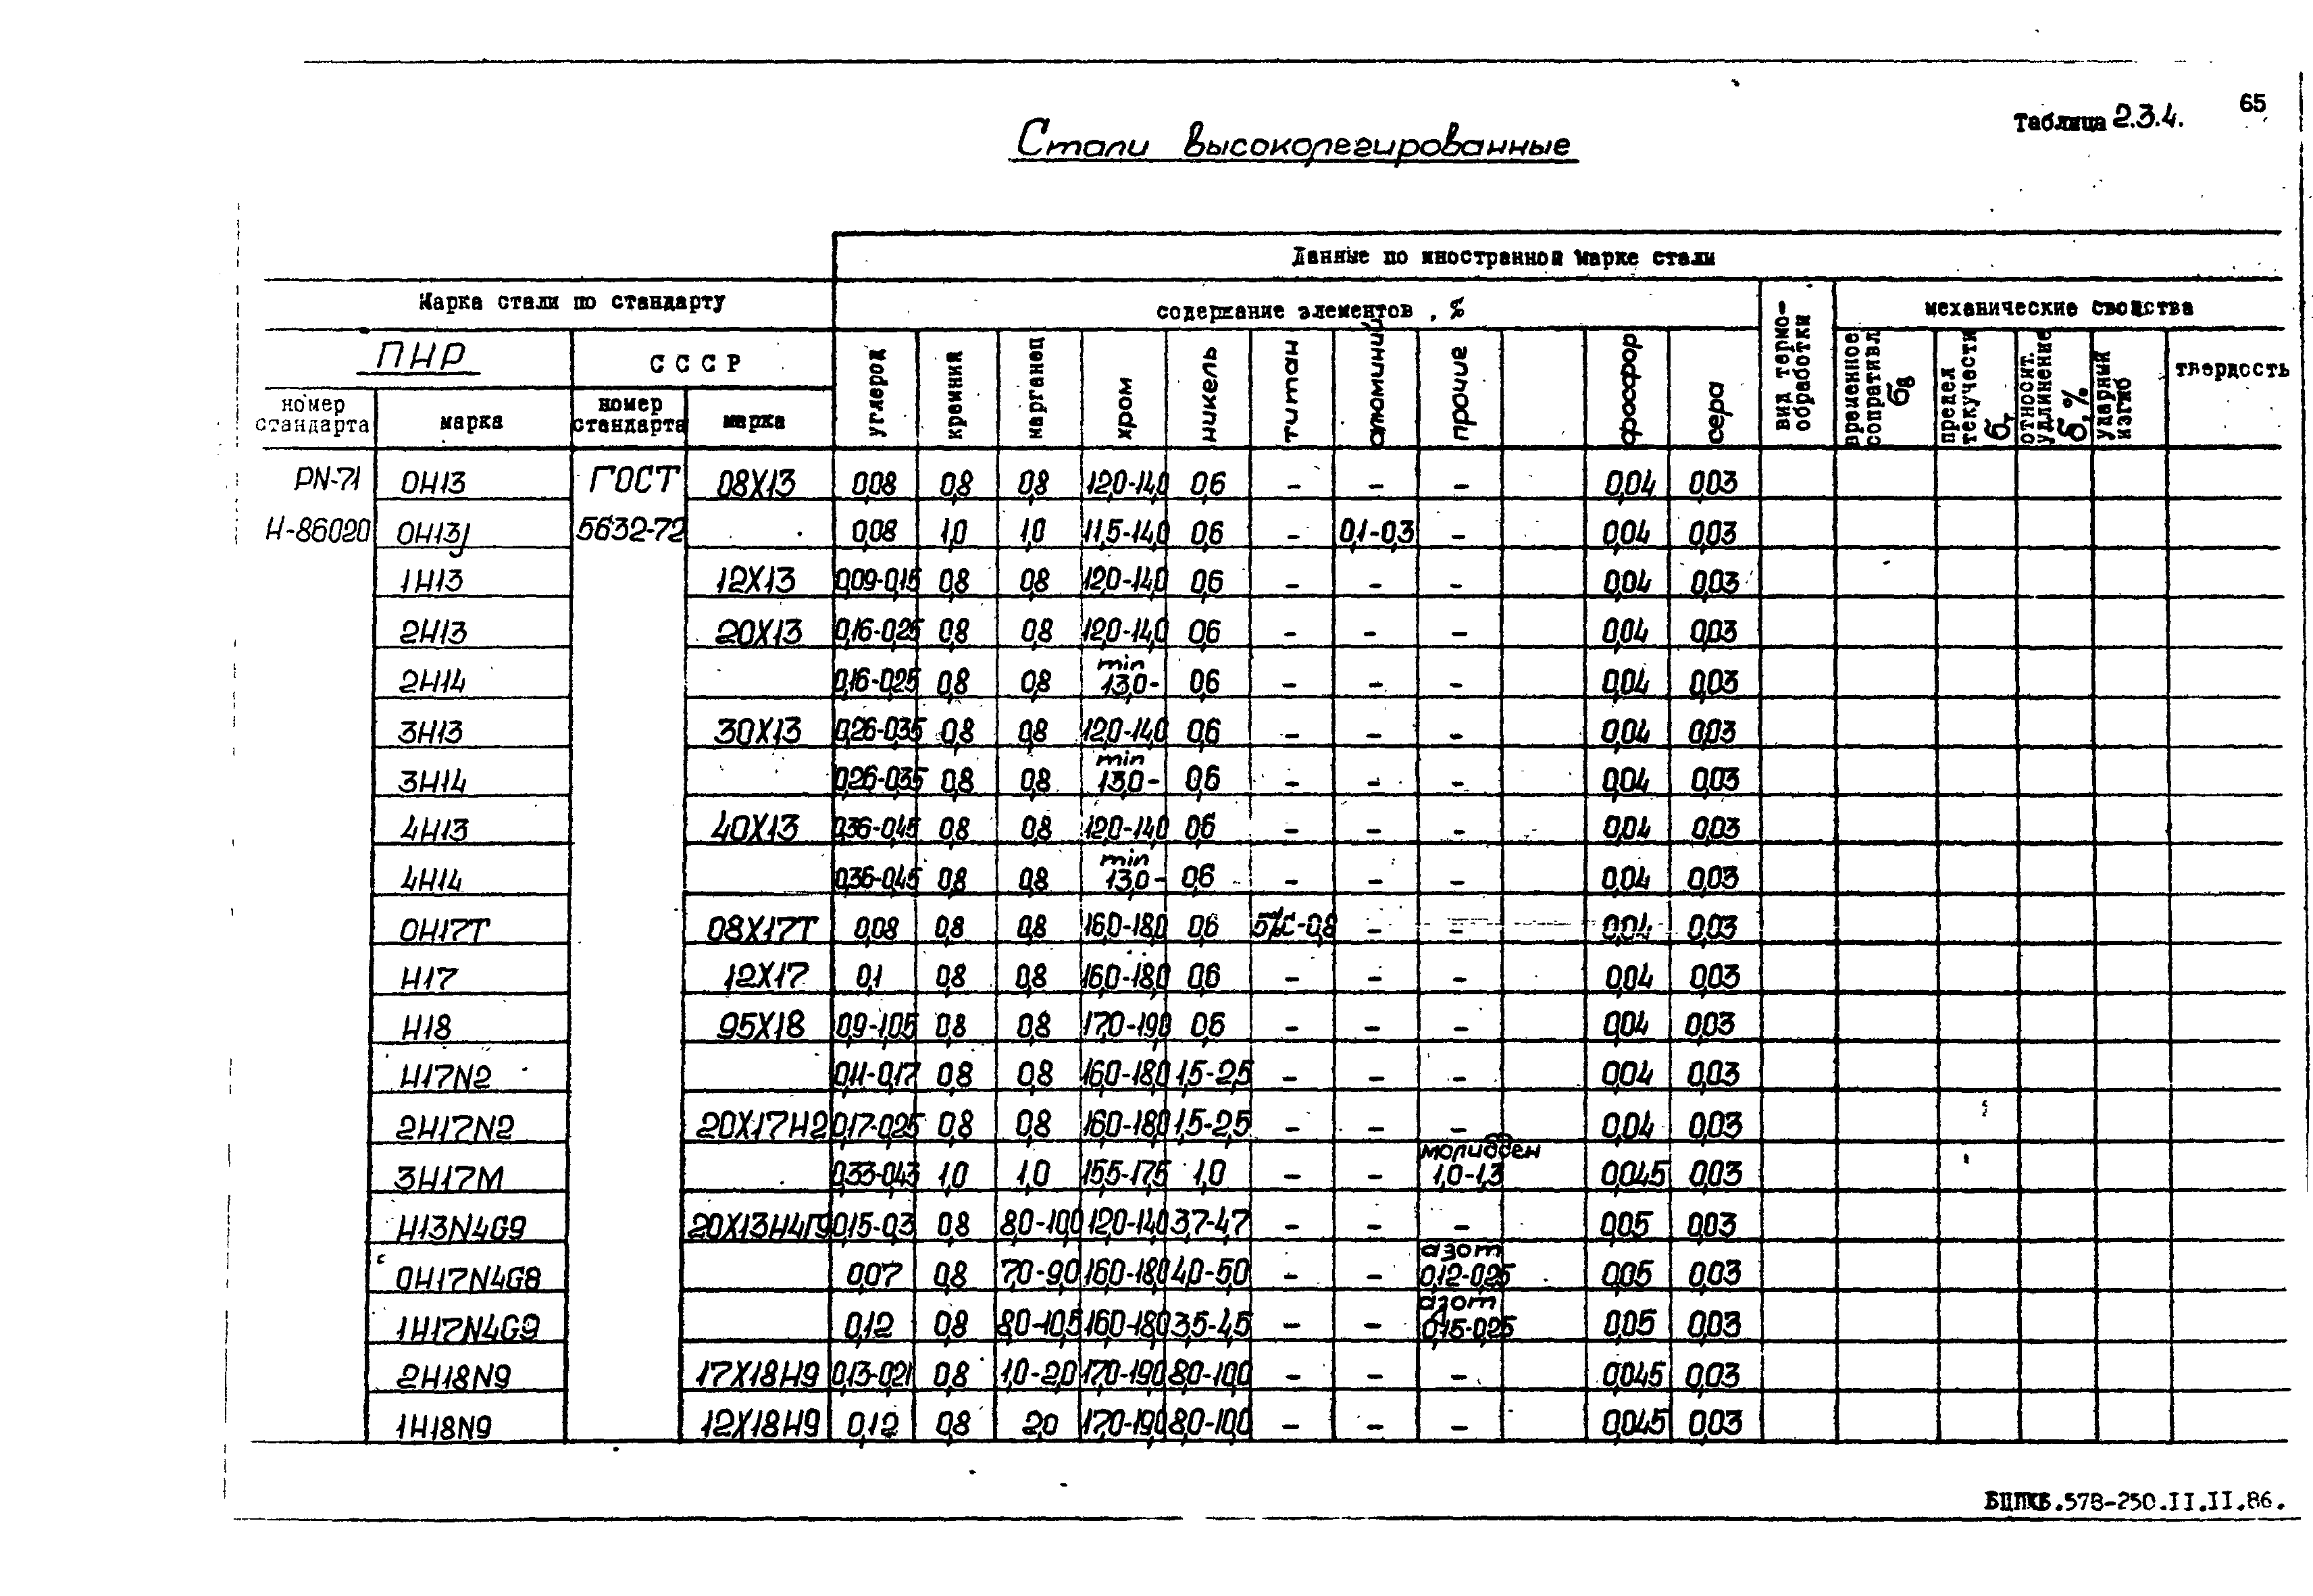 65
Таблица 2.3.4.
Стали высоколегированные
Данные по иностранной марке стали
Марка стали по стандарту
содержание элементов, %
вид термо-обработки
механические свойства
ПНР
СССР
углерод
кремний
марганец
хром
никель
титан
алюминий
прочие
фосфор
сера
временное сопративл. бв
предел текучести бт
относит. удлинение б,%
ударный изгиб
твердость
номер стандарта
марка
номер стандарта
марка
PN-71 0H13 ГОСТ 08Х13 0,08 0,8 0,8 12,0-14,0 0,6 - - - 0,04 0,03
H-86020 0H13J 5632-72 0,08 1,0 1,0 11,5-14,0 0,6 - 0,1-0,3 - 0,04 0,03
1H13 12Х13 0,09-0,15 0,8 0,8 12,0-14,0 0,6 - - - 0,04 0,03
2H13 20Х13 0,16-0,25 0,8 0,8 12,0-14,0 0,6 - - - 0,04 0,03
2H14 0,16-0,25 0,8 0,8 min 13,0- 0,6 - - - 0,04 0,03
3H13 30Х13 0,26-0,35 0,8 0,8 12,0-14,0 0,6 - - - 0,04 0,03
3H14 0,26-0,35 0,8 0,8 min 13,0- 0,6 - - - 0,04 0,03
4H13 40Х13 0,36-0,45 0,8 0,8 12,0-14,0 0,6 - - - 0,04 0,03
4H14 0,36-0,45 0,8 0,8 min 13,0- 0,6 - - - 0,04 0,03
0H17T 08Х17Т 0,08 0,8 0,8 16,0-18,0 0,6 - - 0,04 0,03
H17 12Х17 0,1 0,8 0,8 16,0-18,0 0,6 - - - 0,04 0,03
H18 95Х18 0,9-1,05 0,8 0,8 17,0-19,0 0,6 - - - 0,04 0,03
H17N2 0,11-0,17 0,8 0,8 16,0-18,0 1,5-2,5 - - - 0,04 0,03
2H17N2 20Х17Н2 0,17-0,25 0,8 0,8 16,0-18,0 1,5-2,5 - - - 0,04 0,03
3H17M 0,33-0,43 1,0 1,0 15,5-17,5 1,0 - - молибден 1,0-1,3 0,045 0,03
H13N4G9 20Х13Н4Г9 0,15-0,3 0,8 8,0-10,0 12,0-14,0 3,7-4,7 - - - 0,05 0,03
0H17N4G8 0,07 0,8 7,0-9,0 16,0-18,0 4,0-5,0 - - азот 0,12-0,25 0,05 0,03
1H17N4G9 0,12 0,8 8,0-10,5 16,0-18,0 3,5-4,5 - - азот 0,15-0,25 0,05 0,03
2H18N9 17Х18Н9 0,13-0,21 0,8 1,0-2,0 17,0-19,0 8,0-10,0 - - - 0,045 0,03
1H18N9 12Х18Н9 0,12 0,8 2,0 17,0-19,0 8,0-10,0 - - - 0,045 0,03
БЦПКБ.578-250.II.II.86.